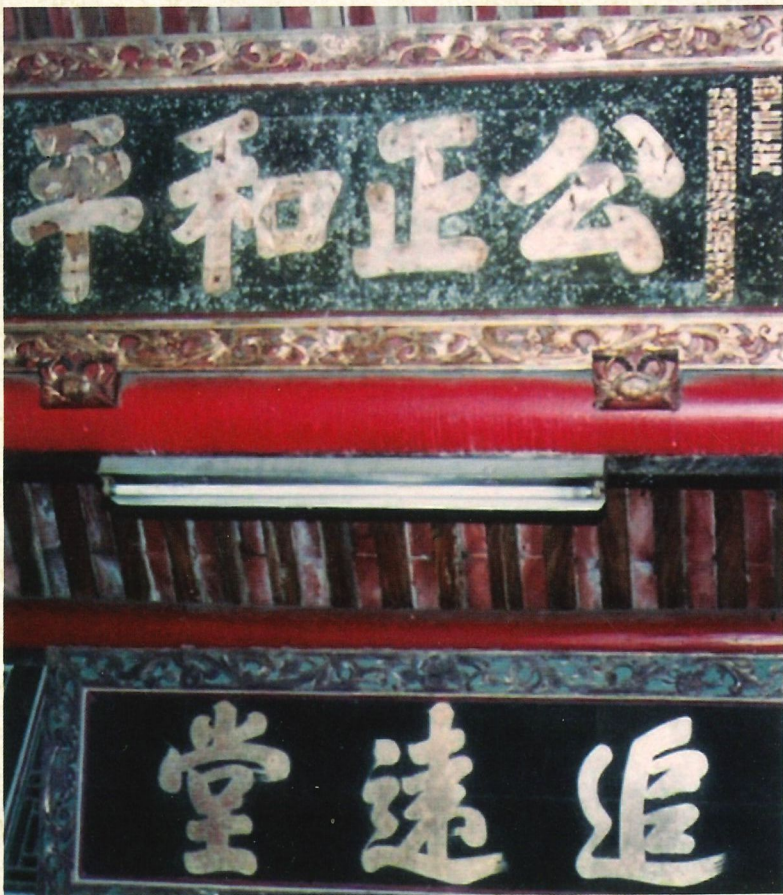 公正和平
追遠堂